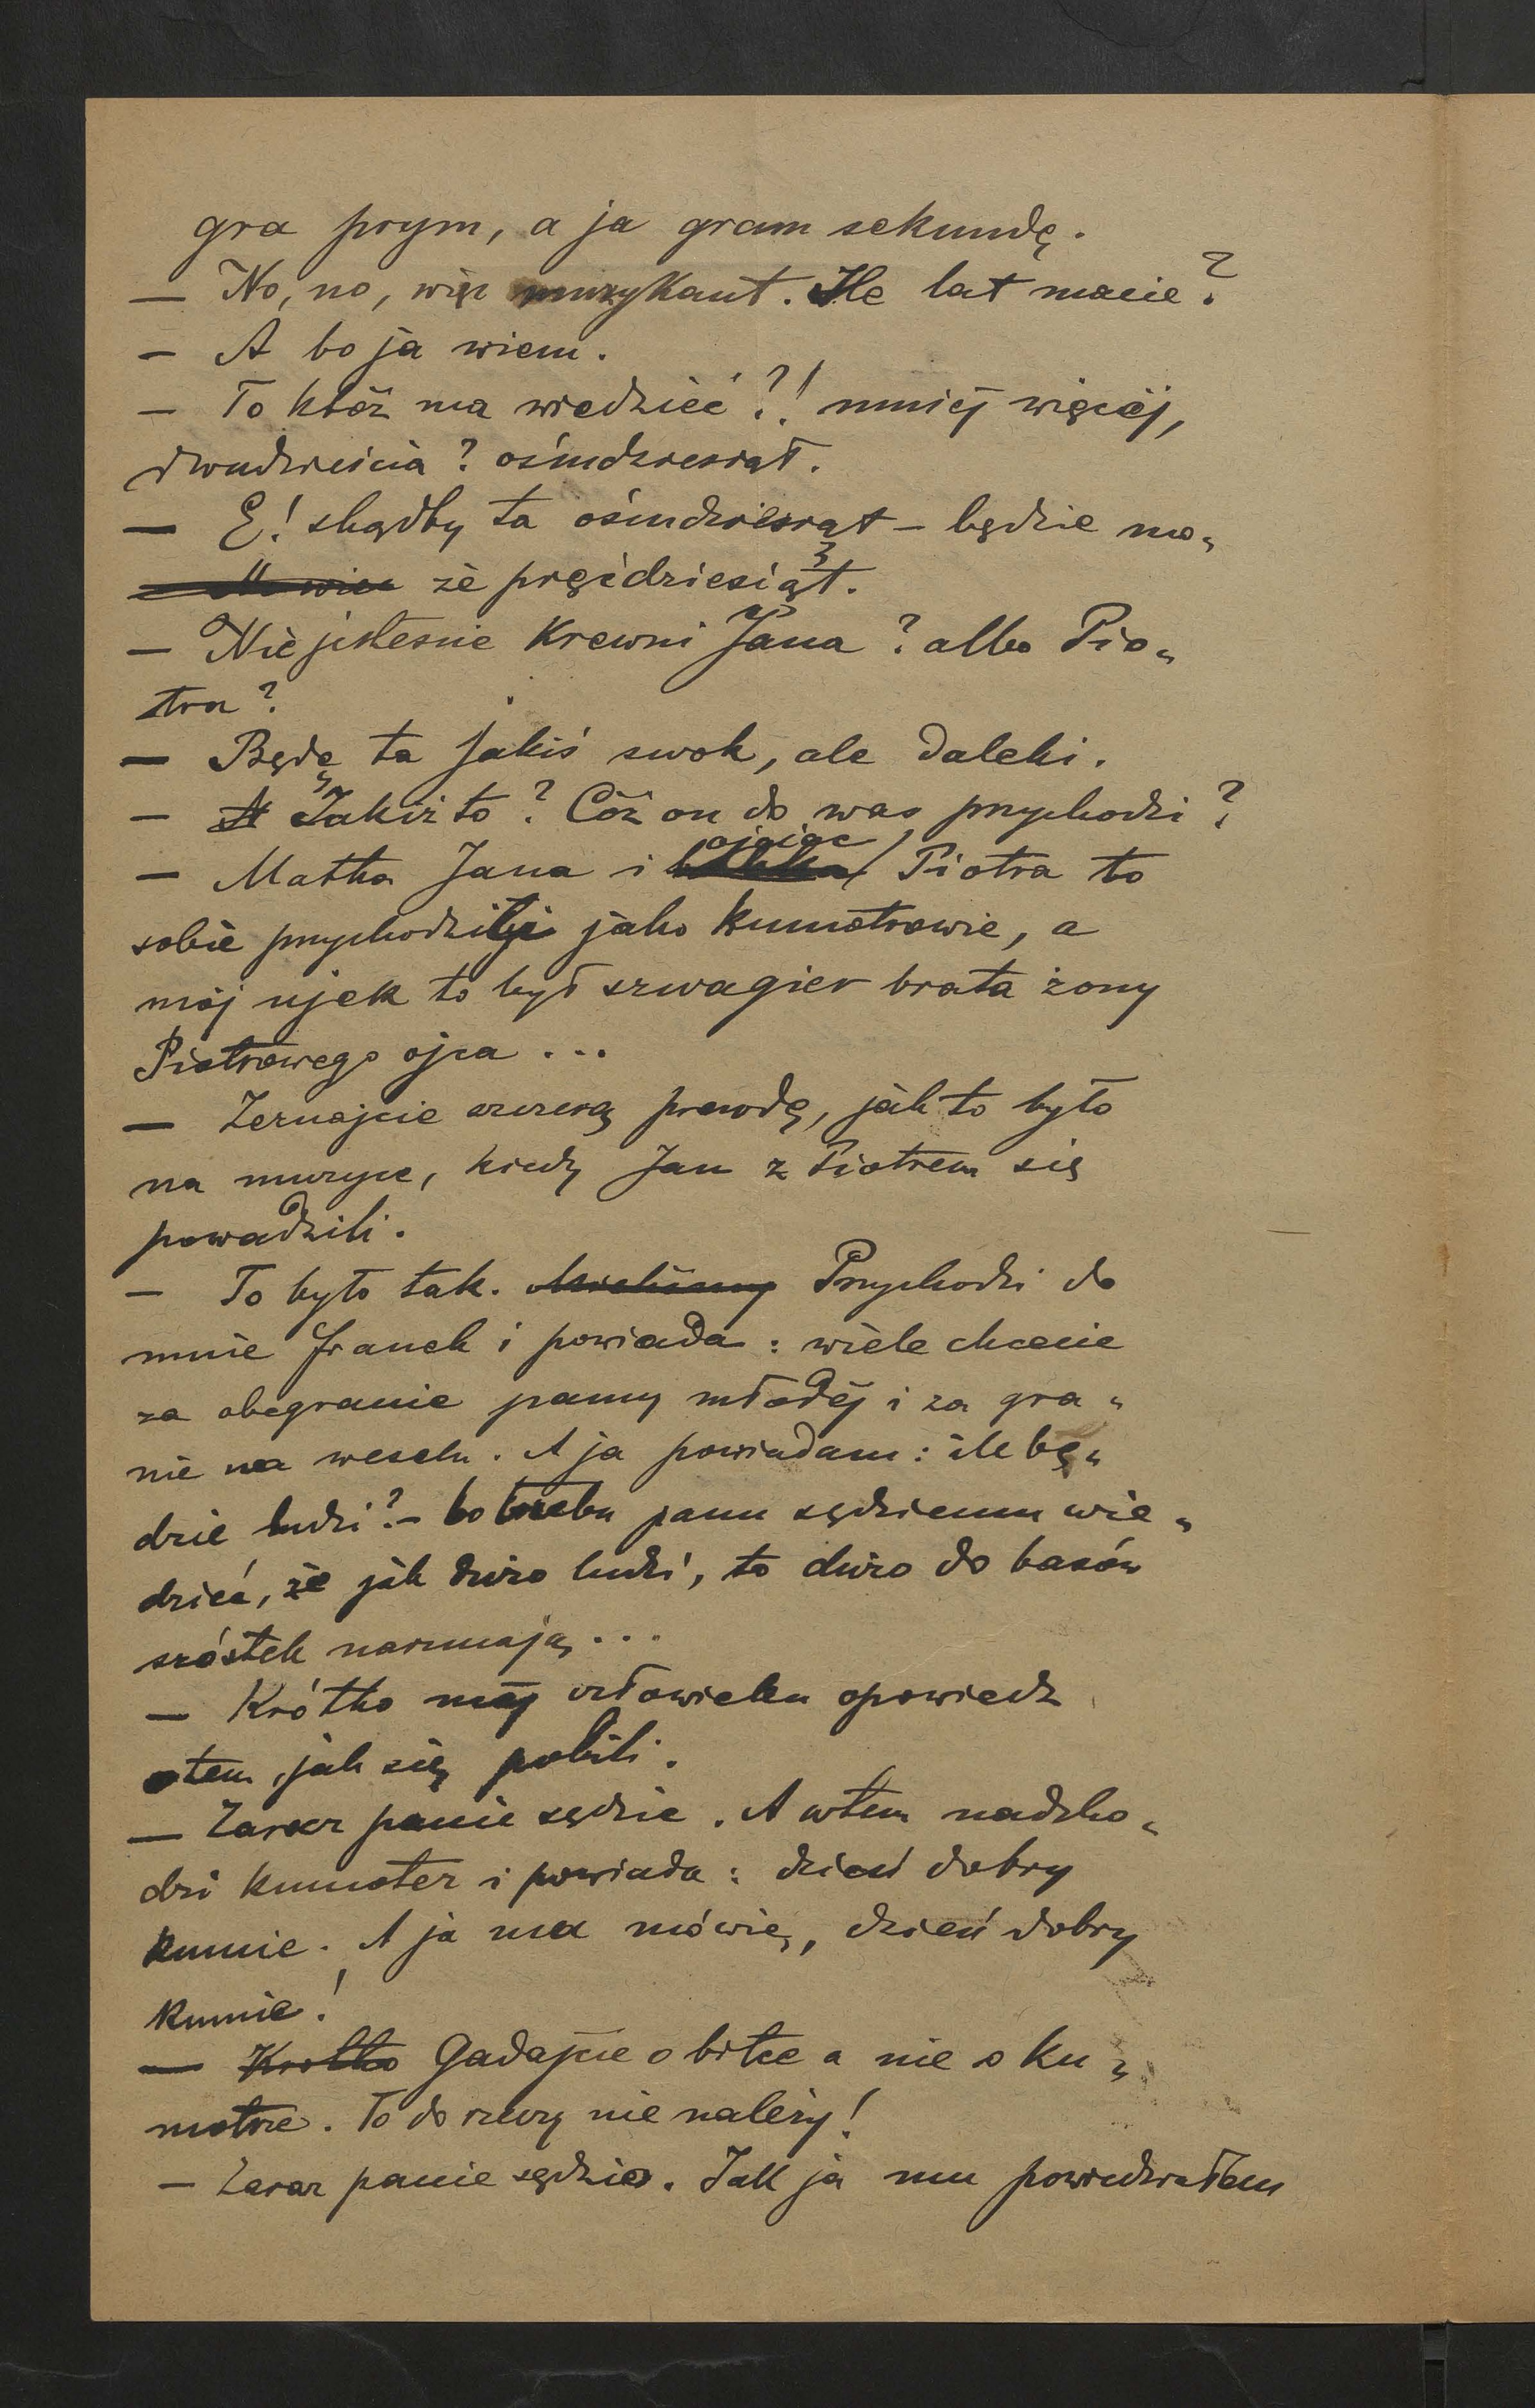 gra prym, a ja gram sekundę.
— No, no, więc muzykant. Ile lat macie?
— A bo ja wiem.
— To któż ma wiedzieć?! mniéj więcéj,
dwadzieścia? ośmdziesiąt.
— E! skądby ta ośmdziesiąt – będzie mo„
że pięćdziesiąt.
— Nie jesteście krewni Jana? albo Pio„
tra?
— Będę ta jakiś swok, ale daleki.
— Jakiż to? Cóż on do was przychodzi?
— Matka Jana i ojciec Piotra to
sobie przychodzili jako kumotrowie, a
mój ujek to był szwagier brata żony
Piotrowego ojca ...
— Zeznajcie szczerą prawdę, jak to było
na muzyce, kiedy Jan z Piotrem się
powadzili.
— To było tak. Przychodzi do
mnie Franek i powiada: wiele chcecie
za obegranie panny młodéj i za gra„
nie na weselu. A ja powiadam: ile bę„
dzie ludzi? – bo trzeba panu sędziemu wie„
dzieć, że jak dużo ludzi, to dużo do basów
szóstek narzucają ...
— Krótko mój człowieku opowiedz
o tem, jak się pobili.
— Zaraz panie sędzio. A wtem nadcho„
dzi kumoter i powiada: dzień dobry
kumie. A ja mu mówię, dzień dobry
kumie!
— Krótko Gadajcie o bitce a nie o ku„
motrze. To do rzeczy nie należy!
— Zaraz panie sędzio. Jak ja mu powiedziałem